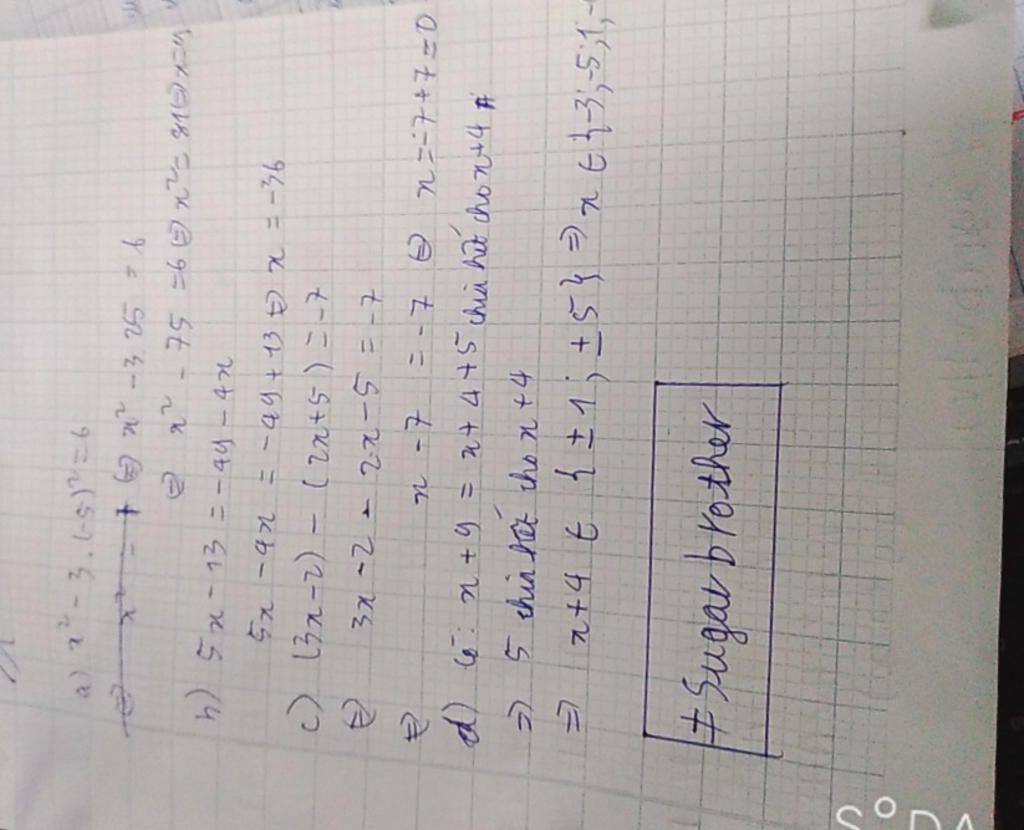 a) x² - 3.(-5)² = 6
⇔ x² - 3.25 = 6
⇔ x² - 75 = 6 ⇔ x² = 81 ⇔ x = 9
b) 5x - 13 = -49 - 4x
5x - 4x = -49 + 13 ⇔ x = -36
c) (3x-2) - (2x+5) = -7
⇔ 3x - 2 - 2x - 5 = -7
⇔ x - 7 = -7 ⇔ x = -7+7 = 0
d) có: x + 9 = x + 4 + 5 chia hết cho x+4
⇒ 5 chia hết cho x+4
⇒ x+4 ∈ {±1; ±5} ⇒ x ∈ {-3; -5; 1; -
# Sugar brother